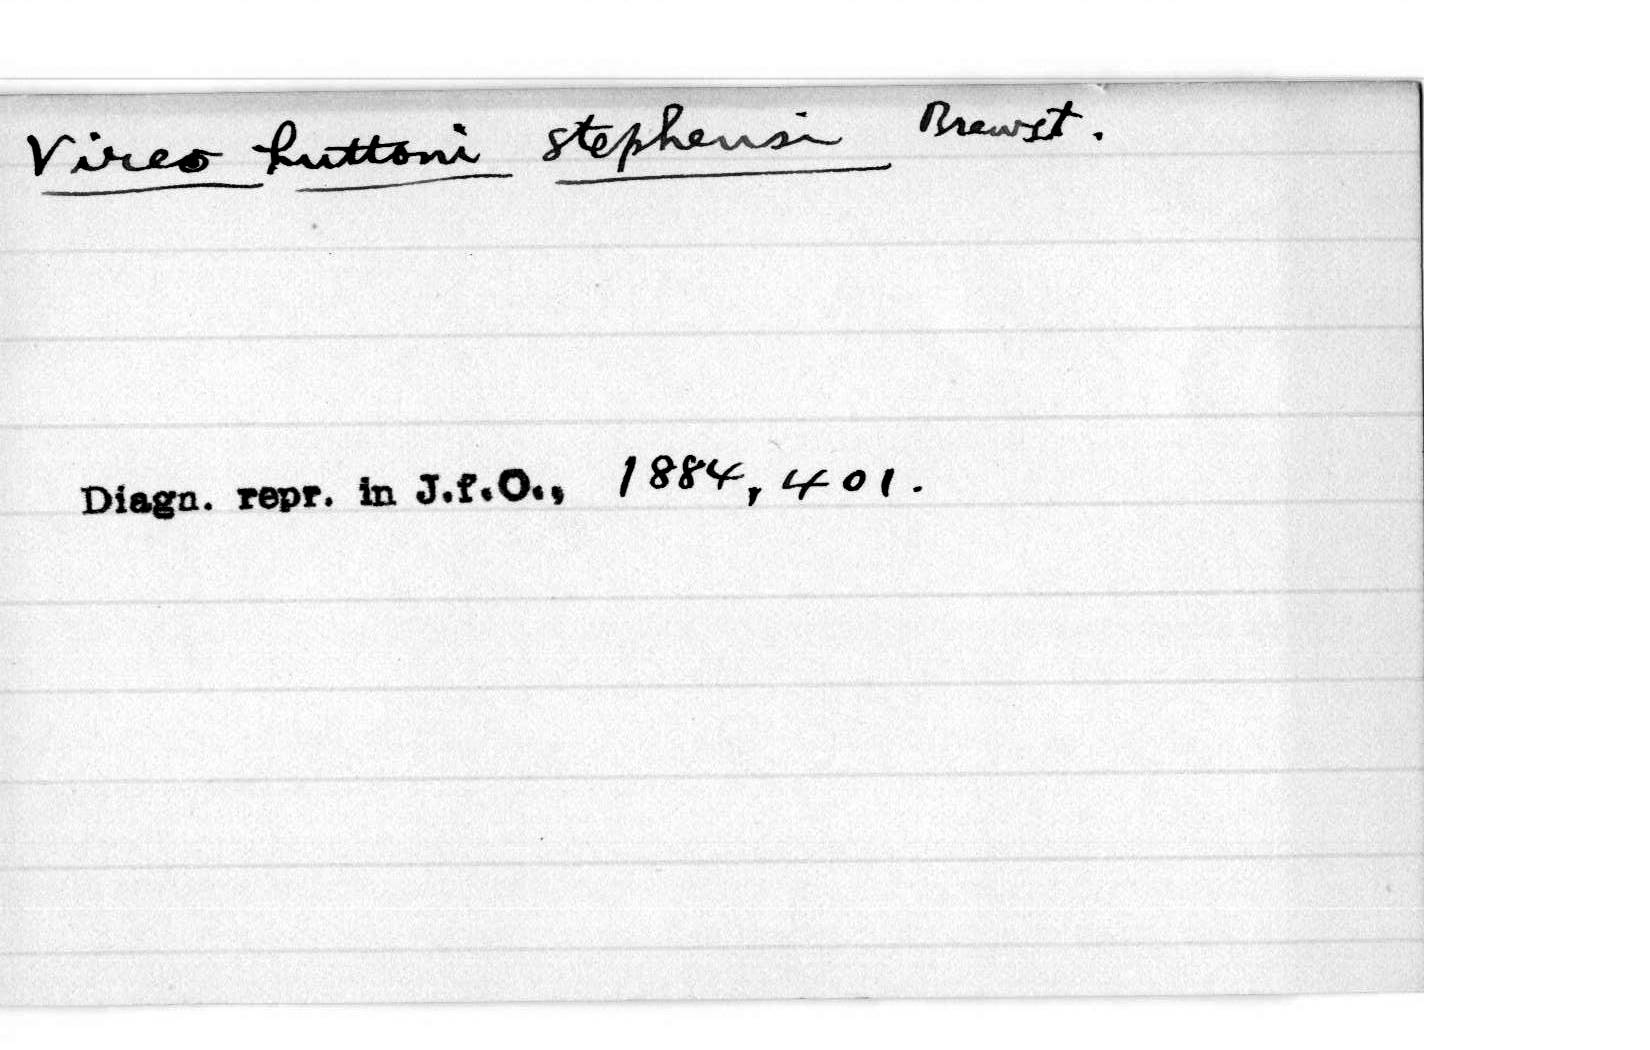 Vireo huttoni stephensi Brewst.
Diagn. repr. in J.f.O., 1884, 401.